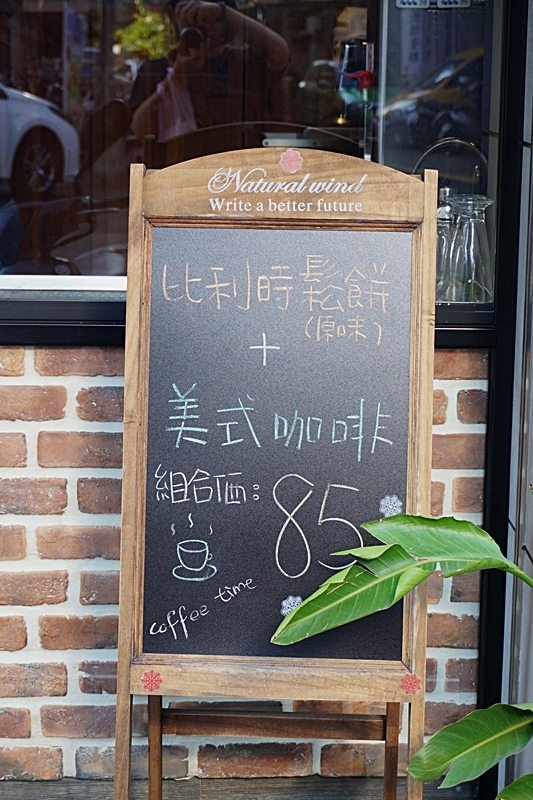 Natural wind
Write a better future
比利時鬆餅
(原味)
+
美式咖啡
組合価:85
coffee time